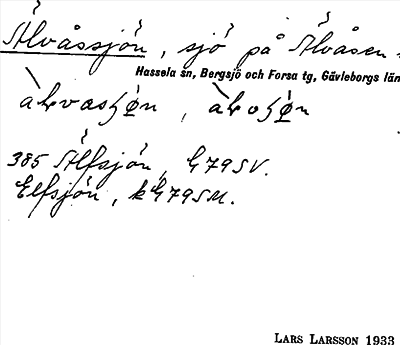 Älvåssjön, sjö på Älvåsen.
Hassela sn, Bergsjö och Forsa tg, Gävleborgs län
385 Älfsjön, G79SV.
Elfsjön, k G79SM.
LARS LARSSON 1933